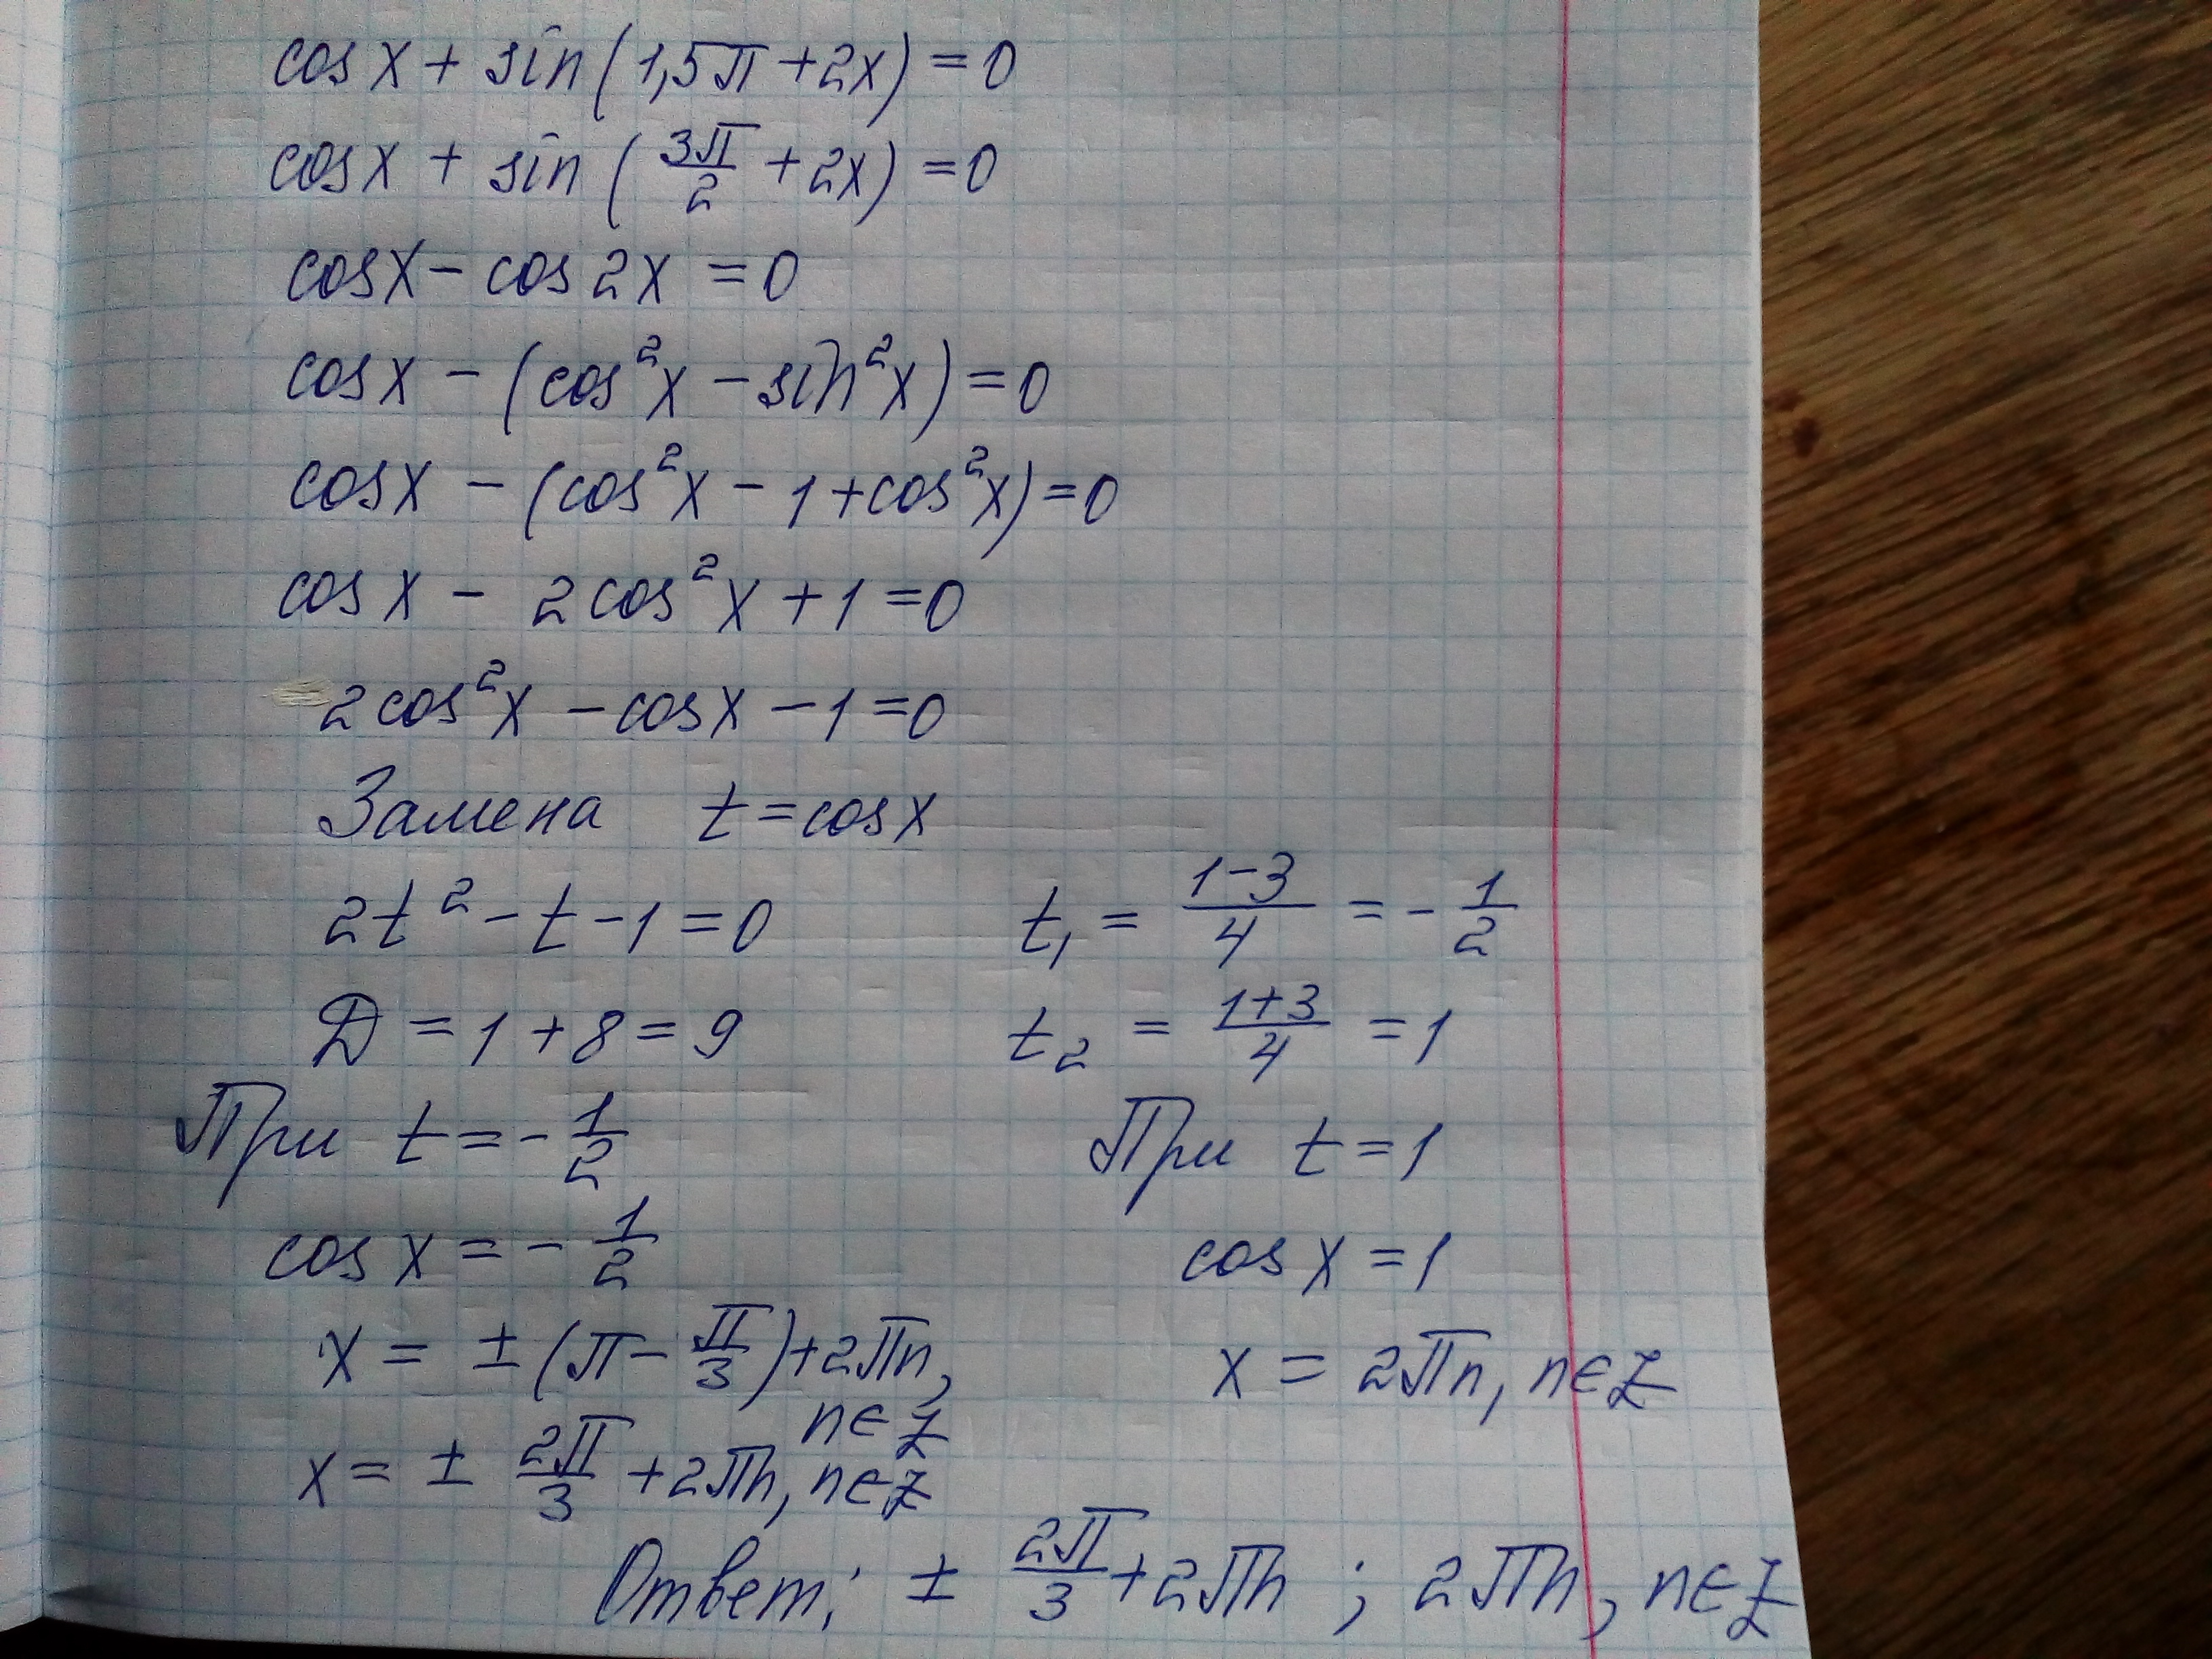 cos x + sin (1,5π + 2x) = 0
cos x + sin (3π/2 + 2x) = 0
cos x - cos 2x = 0
cos x - (cos²x - sin²x) = 0
cos x - (cos²x - 1 + cos²x) = 0
cos x - 2cos²x + 1 = 0
2cos²x - cos x - 1 = 0
Замена t = cos x
2t² - t - 1 = 0 t₁ = (1-3)/4 = -1/2
Д = 1 + 8 = 9 t₂ = (1+3)/4 = 1
При t = -1/2 При t = 1
cos x = -1/2 cos x = 1
x = ±(π - π/3) + 2πn, n∈Z x = 2πn, n∈Z
x = ± 2π/3 + 2πn, n∈Z
Ответ: ± 2π/3 + 2πn ; 2πn, n∈Z